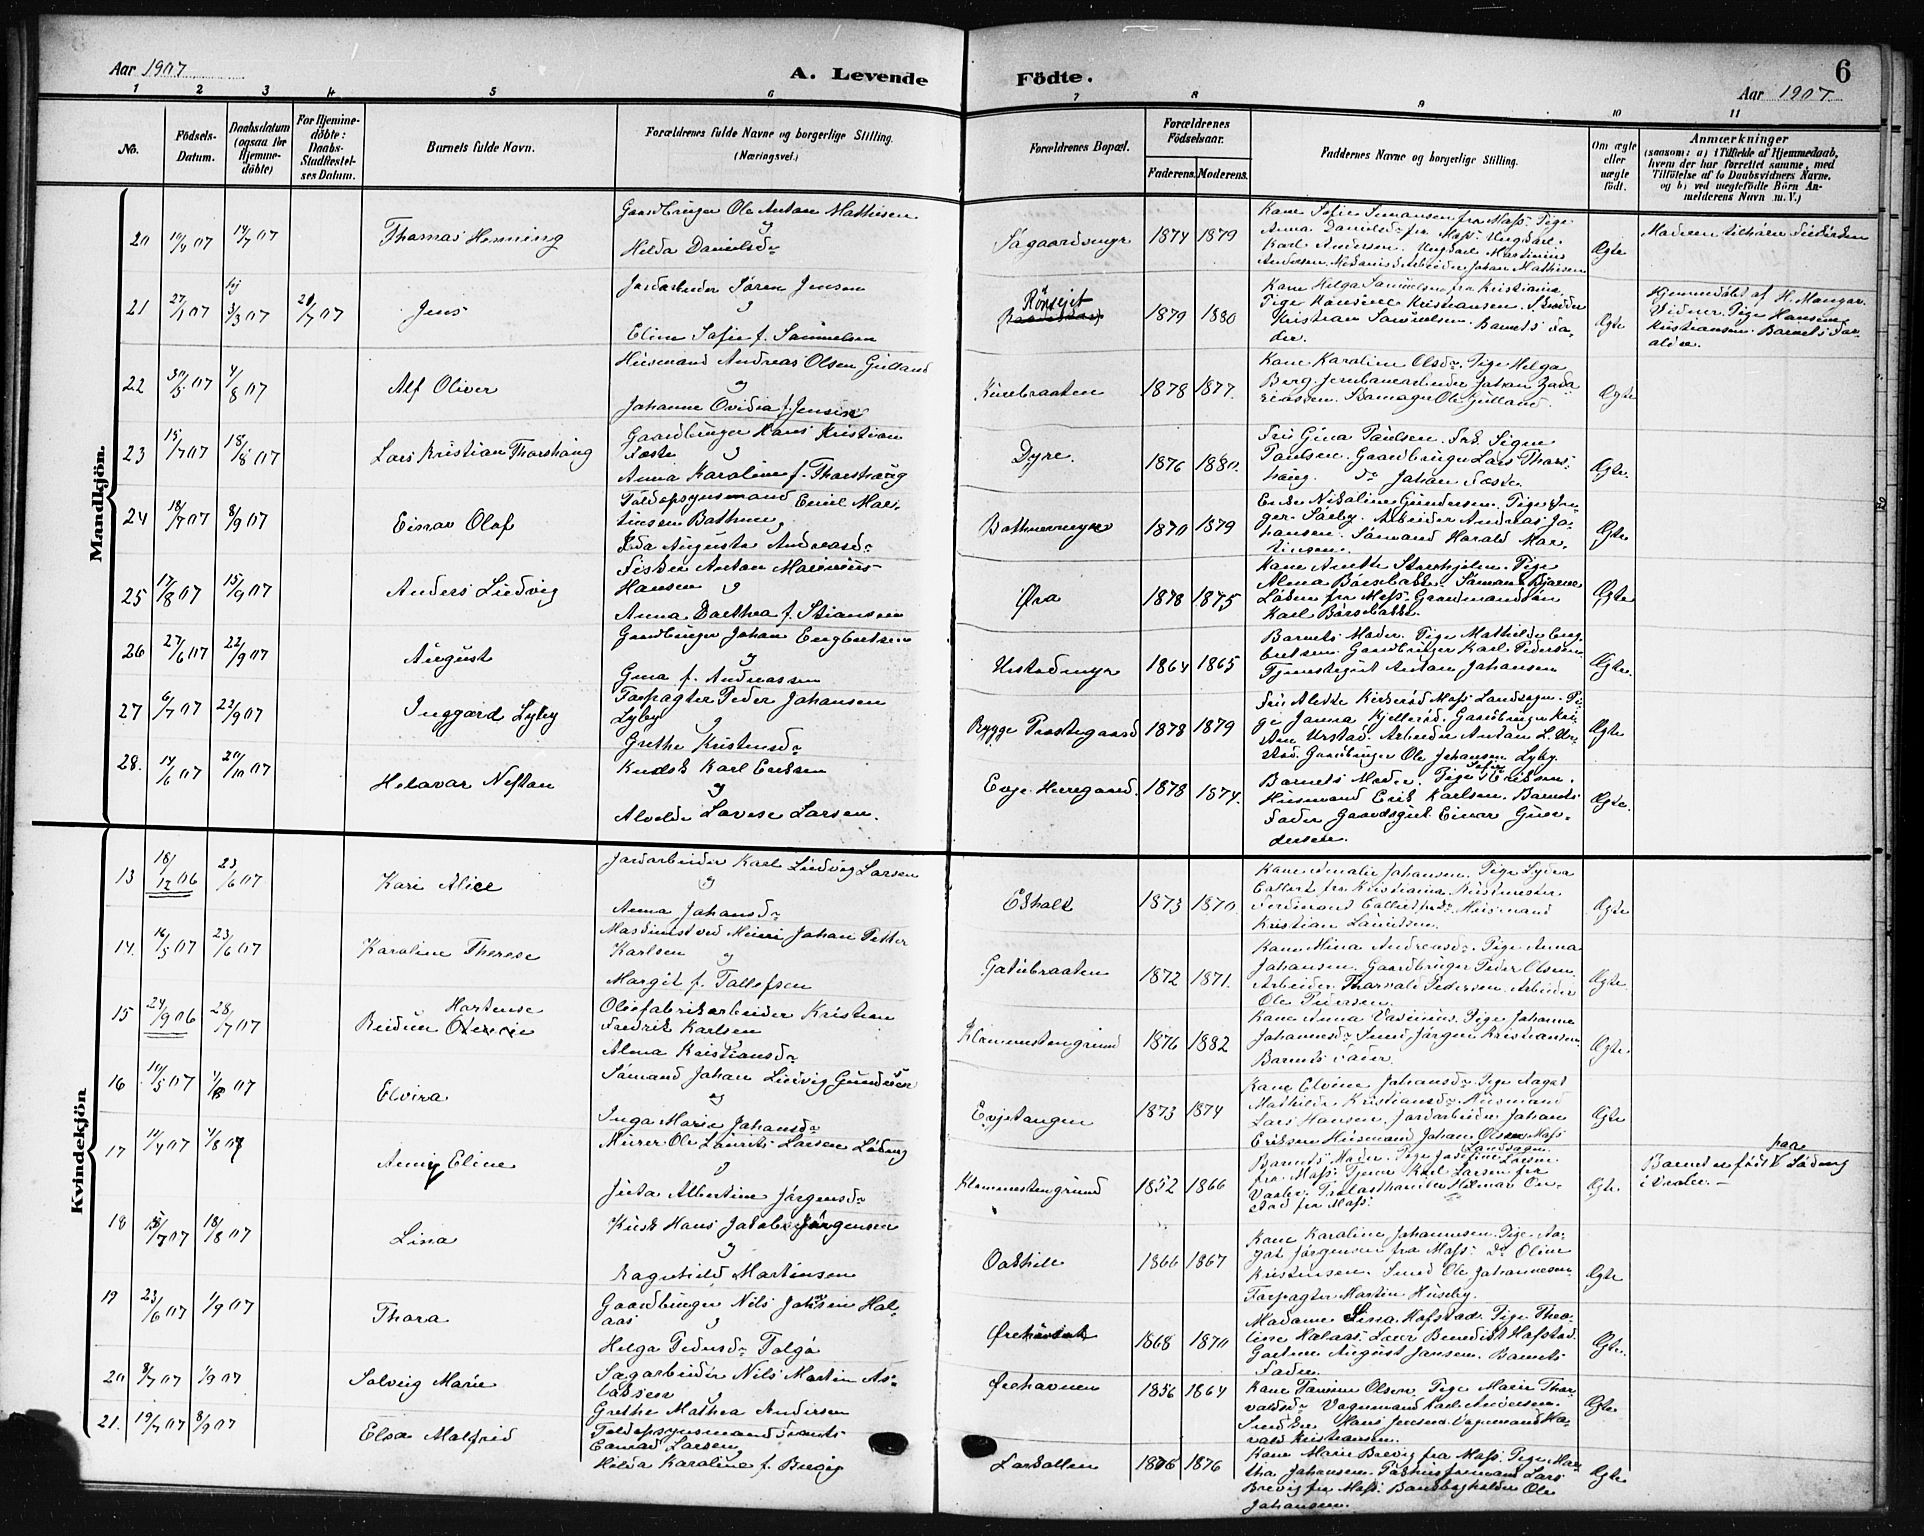 Aar 1907
A. Levende
Födte.
6
Aar 1907.
1 2 3 4 5 6 7 8 9 10 11
No.
Födsels-
Datum.
Daabsdatum
(ogsaa for
Hjemme-
döbte)
For Hjemme-
döbte:
Daabs-
Stadfestel-
ses Datum.
Barnets fulde Navn.
Forældrenes fulde Navne og borgerlige Stilling.
(Næringsvei.)
Forældrenes Bopæl.
Forældrenes
Födselsaar.
Faderens. Moderens.
Faddernes Navne og borgerlige Stilling.
Om ægte
eller
uægte
födt.
Anmærkninger
(saasom: a) i Tilfælde af Hjemmedaab,
hvem der har forrettet samme, med
Tilföielse af to Daabsvidners Navne.
og b) ved uægtefödte Börn An-
melderens Navn m. V.)
Mandkjön.
20 10/4 07 14/7 07 Thomas Henning
Gaardbruger Ole Anton Mathisen
og
Hilda Danielsdr
Sogaardsmyr 1874 1879
Kone Sofie Simonsen fra Moss. Pige
Anna Danielsdr fra Moss. Ungkarl
Karl Andersen. Ungkarl Martinius
Andersen. Mekanisk Arbeider Johan Mathisen
Ægte
21 27/1 07 3/3 07 28/7 07 Jens
Jordarbeider Sören Jensen
og
Eline Sofie f. Samuelsen
Rönsejet 1879 1880
Kone Helga Samuelsen fra Kristiania.
Pige Hansine Kristiansen. Skrædder
Kristian Samuelsen. Barnets Fa-
der.
Ægte
Hjemmedöbt af H. Mangor.
Vidner: Pige Hansine
Kristiansen. Barnets For-
ældre.
22 30/5 07 4/8 07 Alf Oliver
Husmand Andreas Olsen Gulland
og
Johanne Ovidia f. Jensen
Kurebraaten 1878 1877.
Kone Karoline Olsdr. Pige Helga
Berg. Jernbanearbeider Johan Zaka
riassen. Skomager Ole Gulland
Ægte
23 15/7 07 18/8 07 Lars Kristian Thorshaug
Gaardbruger Hans Kristian
Foste og
Anna Karoline f. Thorshaug
Dyre. 1876 1880.
Fru Gina Paulsen. Frk. Signe
Paulsen. Gaardbruger Lars Thors-
haug. Do Johan Foste.
Ægte.
24 18/7 07 8/9 07 Einar Olaf
Toldopsynsmand Emil Mar-
tinsen Bathnen
Ida Augusta Andreasdr
Bathnermyr 1870 1879
Enke Nikoline Gundersen. Pige In-
ger Saxby. Arbeider Andreas Jo-
hansen. Sömand Harald Mar-
tinsen.
Ægte
25 17/8 07 15/9 07 Anders Ludvig
Fisker Anton Marinius
Hansen og
Anna Dorthea f. Stiansen
Øra 1878 1875
Kone Anette Starhjelen. Pige
Alma Börsebakke. Sömand Bjarne
Löken fra Moss. Gaardmandssön
Karl Börsebakke.
Ægte
26 27/6 07 22/9 07 August
Gaardbruger Johan Engbretsen
og
Gina f. Andreassen
Urstadmyr 1864 1865
Barnets Moder. Pige Mathilde Eng-
bretsen. Gaardbruger Karl Pedersen.
Tjenestegut Anton Johansen
Ægte.
27 6/7 07 22/9 07 Inggard Lyby
Forpagter Peder Johansen
Lyby og
Grethe Kristensdr
Rygge Prestegaard 1878 1879
Fru Alette Kirkeröd Moss Landsogn. Pi-
ge Janna Kjelleröd. Gaardbruger Kri-
sten Urstad. Arbeider Anton L. Ur-
stad. Gaardbruger Ole Johansen Lyby.
Ægte
28. 14/6 07 20/10 07 Helavar Neftan
Kudsk Karl Eriksen
og
Alvilde Lovise Larsen.
Evje Herregaard. 1878 1874.
Barnets Moder. Pige Sofie Eriksen.
Husmand Erik Karlsen. Barnets
Fader. Gaardsgut Einar Gun-
dersen.
Ægte.
Kvindekjön
13 18/12 06 23/6 07 Kari Alice
Jordarbeider Karl Ludvig Larsen
og
Anna Johansdr
Eskolt 1873 1870.
Kone Amalie Johansen. Pige Lydia
Callert fra Kristiania. Murmester
Ferdinand Callert fra do. Husmand
Kristian Lauritsen.
Ægte
14. 16/5 07 23/6 07 Karoline Therese
Maskinist ved Meieri Johan Petter
Karlsen og
Margit f. Tollefsen
Gatubraaten 1872 1871.
Kone Mina Andreasdr. Pige Anna
Johansen. Gaardbruger Peder Olsen.
Arbeider Thorvald Pedersen. Arbeider
Ole Petersen.
Ægte.
15 24/9 06 28/7 07 Reidun Hortense
Oliefabrikarbeider Kristian
Fredrik Karlsen
Alma Kristiansdr
Klemmestengrund 1876 1882
Kone Anna Vasinius. Pige Johanne
Johannesdr. Smed Jörgen Kristiansen.
Barnets Fader.
Ægte.
16 10/5 07 4/8 07 Elvira
Sömand Johan Ludvig Gundersen
og
Inga Marie Johansdr
Evjetangen 1873 1874
Kone Elvine Johansdr. Pige Aagot
Mathilde Kristiansdr. Husmand
Lars Hansen. Jordarbeider Johan
Eriksen. Husmand Johan Olsen Moss
Landsogn.
Ægte
17 11/4 07 4/8 07 Anny Eline
Murer Ole Laurits Larsen Löberg
og
Juta Albertine Jörgensdr
Klemmestengrund 1852 1866
Barnets Moder. Pige Josefine Larsen
fra Moss. Tjener Karl Larsen fra
Vaaler. Trælasthandler Hilmar On-
stad fra Moss.
Ægte.
Barnet er född paa Löberg
i Vaaler.
18 15/7 07 18/8 07 Lina
Kusk Hans Jakob Jörgensen
og
Ragnhild Martinsen
Oakhill 1866 1867
Kone Karoline Johannesen. Pige Aa-
got Jörgensen fra Moss. Do Oline
Kristensen. Smed Ole Johannesen.
Forpagter Martin Huseby.
Ægte
19 23/6 07 1/9 07 Thora
Gaardbruger Nils Johnsen Hol-
aas og
Helga Pedersdr Tolgö
Ørehavnt 1868 1870
Madame Lina Hofstad. Pige Theo-
line Holaas. Lærer Benedikt Hofstad.
Gartner August Jansen. Barnets
Fader.
Ægte.
20 8/7 07 1/9 07 Solveig Marie
Sagarbeider Nils Martin As-
laksen og
Grethe Mathea Andersen
Ørehavnen 1856 1864
Kone Tomine Olsen. Pige Marie Thor-
valdsdr. Vognmand Karl Andersen.
Snedker Hans Jensen. Vognmand Ha-
rald Kristiansen.
Ægte
21. 19/7 07 8/9 07 Elsa Malfrid
Toldopsynsmand Frants
Conrad Larsen
Hilda Karoline f. Brevig
Larkollen 1876 1876
Kone Marie Brevig fra Moss. Pige Mar-
tha Johansen. Paktusformand Lars
Brevig fra Moss. Bandbogholder Ole
Johansen.
Ægte